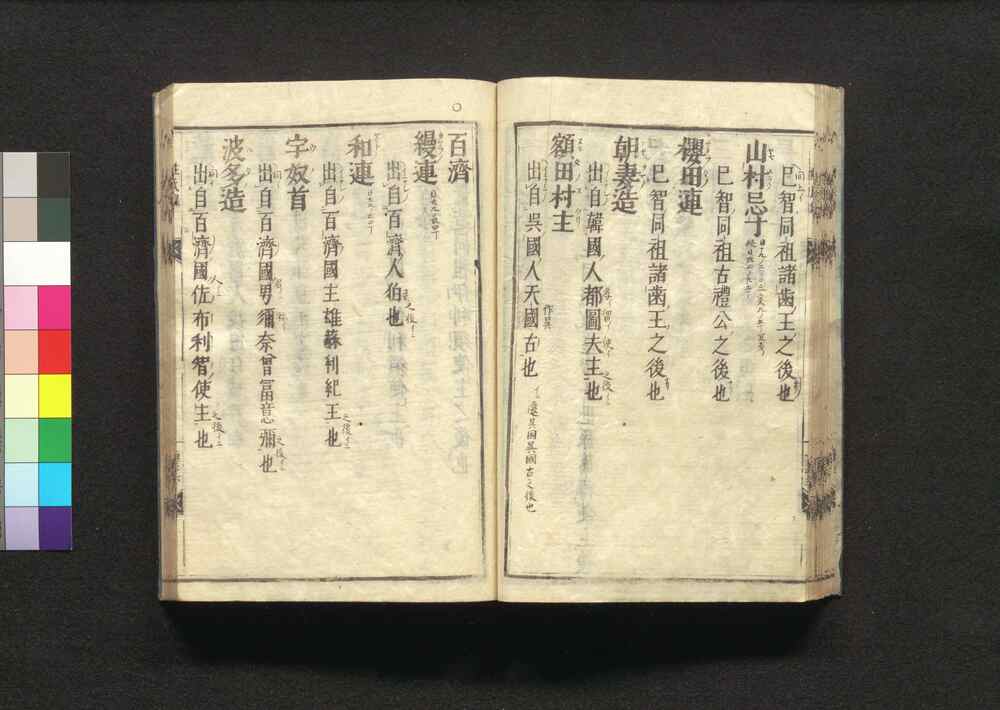 巳智同祖諸歯王之後也
山村忌寸
巳智同祖古禮公之後也
櫻田連
巳智同祖諸歯王之後也
朝妻造
出自韓國人都圖夫主也
額田村主
出自呉國人天國古也
作呉
百濟
縵連
出自百濟人伯也
和連
出自百濟國主雄蘇利紀王也
宇奴首
出自百濟國男彌奈曾冨意彌也
波多造
出自百濟國佐布利智使主也